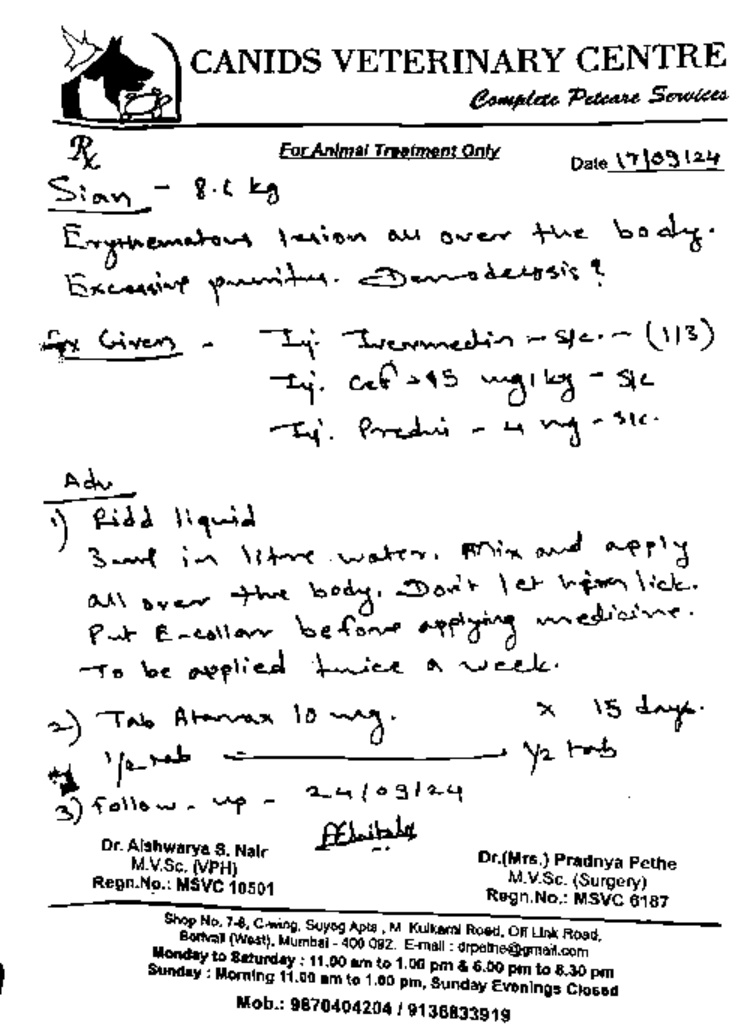 CANIDS VETERINARY CENTRE
Complete Petcare Services
Rx
For Animal Treatment Only
Date 17/09/24
Sian - 8. kg
Erythematous lesion all over the body.
Excessive pruritus. Demodecosis?
Given - Inj. Ivermectin - s/c. - (1/3)
Inj. Cef mg/kg - s/c
Inj. Predni - 4 mg - s/c.
Adv
1) Ridd liquid
3 ml in litre water. Mix and apply
all over the body. Don't let him lick.
Put E-collar before applying medicine.
To be applied twice a week.
2) Tab Atarax 10 mg. x 15 days.
1/2 tab — 1/2 tab
3) Follow-up - 24/09/24
Dr. Aishwarya S. Nair
M.V.Sc. (VPH)
Regn.No.: MSVC 10501
Dr.(Mrs.) Pradnya Pethe
M.V.Sc. (Surgery)
Regn.No.: MSVC 6187
Shop No. 7-8, C-wing, Suyog Apts., M. Kulkarni Road, Off Link Road,
Borivali (West), Mumbai - 400 092. E-mail : drpethe@gmail.com
Monday to Saturday : 11.00 am to 1.00 pm & 6.00 pm to 8.30 pm
Sunday : Morning 11.00 am to 1.00 pm, Sunday Evenings Closed
Mob.: 9870404204 / 9136833919